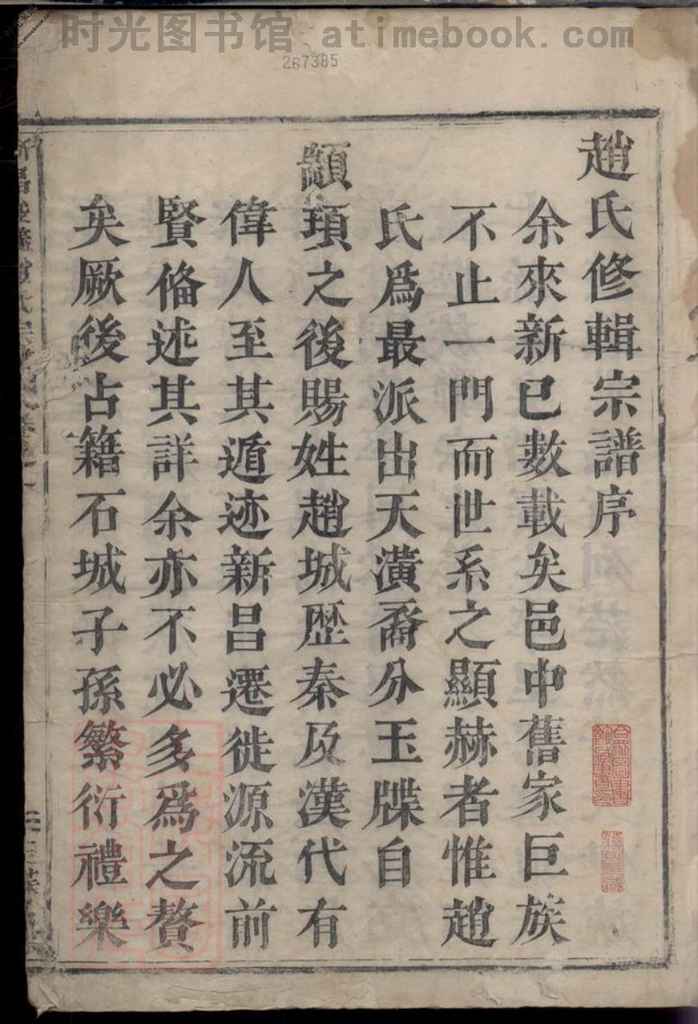 时光图书馆 atimebook.com
267385
趙氏修輯宗譜序
余來新已數載矣邑中舊家巨族
不止一門而世系之顯赫者惟趙
氏爲最派出天潢裔分玉牒自
顓頊之後賜姓趙城歴秦及漢代有
偉人至其遁迹新昌遷徙源流前
賢偹述其詳余亦不必多爲之贅
矣厥後占籍石城子孫繁衍禮樂